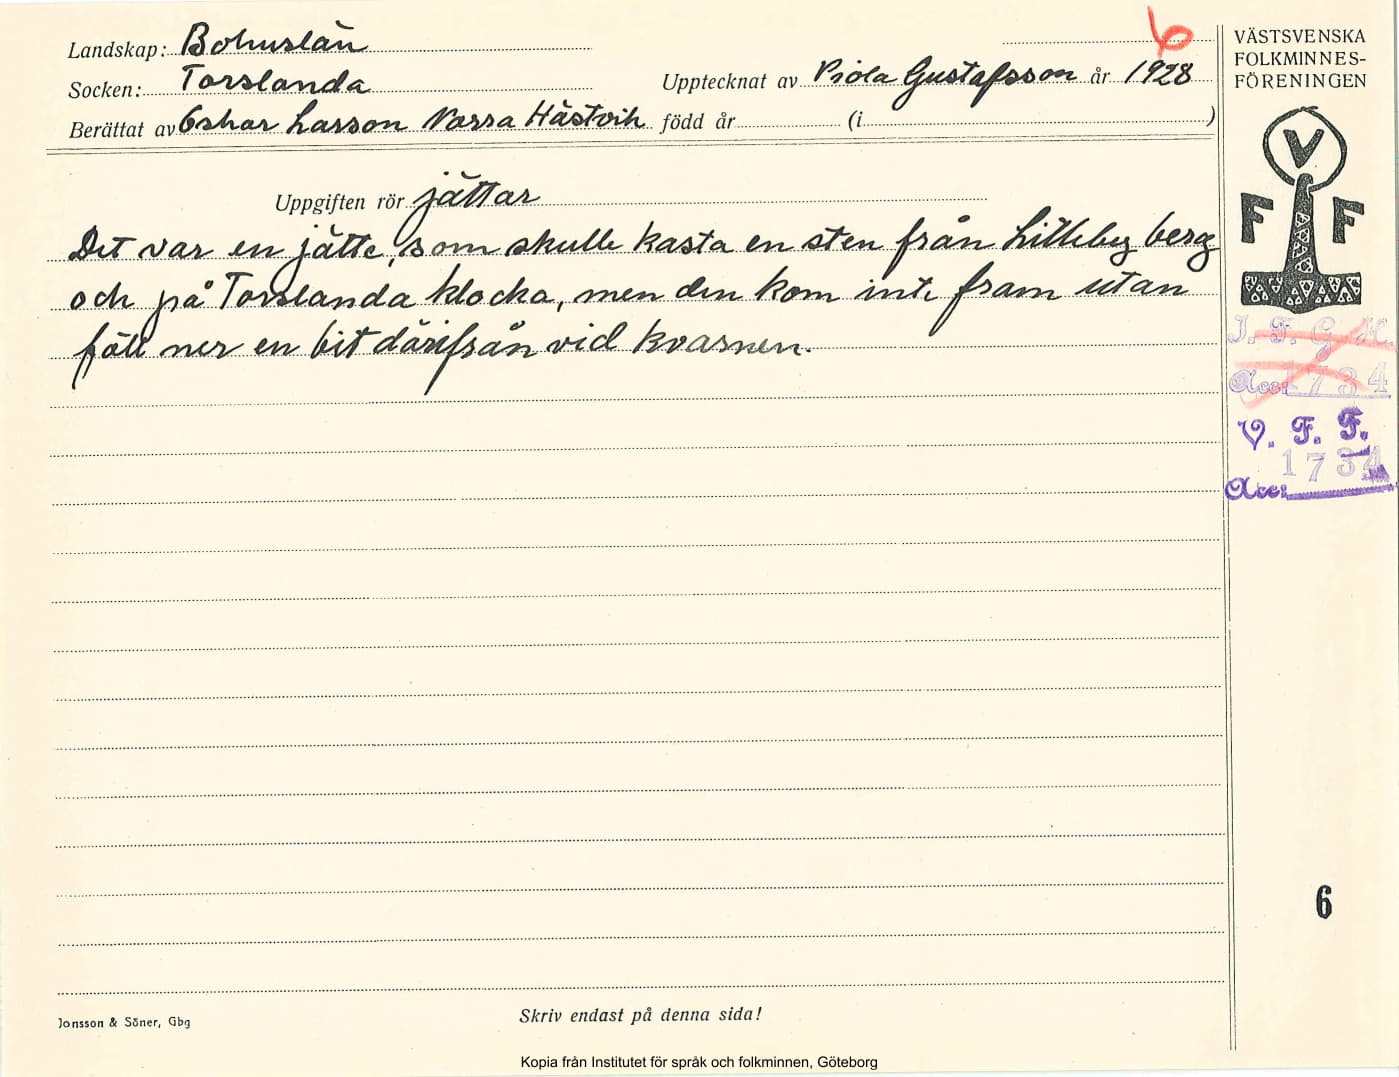 6
Landskap: Bohuslän
Socken: Torslanda
Upptecknat av Viola Gustafsson år 1928
Berättat av Oskar Larsson Norra Hästvik född år (i )
Uppgiften rör jättar
Det var en jätte, som skulle kasta en sten från Lilleby berg
och på Torslanda klocka, men den kom inte fram utan
föll ner en bit därifrån vid kvarnen.
VÄSTSVENSKA
FOLKMINNES-
FÖRENINGEN
V
F F
I. F. G. H.
Acc: 1734
V. F. F.
1734
Acc:
6
Jonsson & Söner, Gbg
Skriv endast på denna sida!
Kopia från Institutet för språk och folkminnen, Göteborg